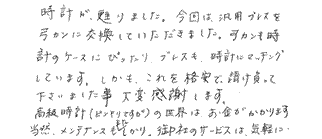 時計が、甦りました。今回は、汎用ブレスを
弓カンに交換していただきました。弓カンも時
計のケースにぴったり、ブレスも、時計にマッチング
しています。しかも、これを格安で、請け負って
下さいました事 大変感謝します。
高級時計(ピンキリですが)の世界は お金がかかります
当然、メンテナンスも然り。御社のサービスは、気軽に